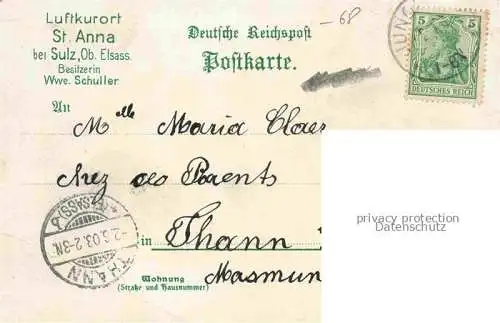 Luftkurort
St. Anna
bei Sulz, Ob. Elsass.
Besitzerin
Wwe. Schuller
Deutsche Reichspost
Postkarte.
-68
5 5
DEUTSCHES REICH
An
Mlle Maria Claer
chez des Parents
in Thann
Masmun
Wohnung
(Straße und Hausnummer)
THANN
(ELSASS)
2.6.03.2-3N.
privacy protection
Datenschutz